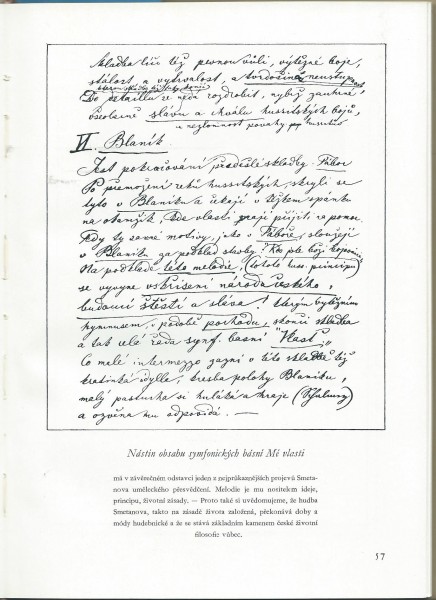 skladba líčí též pevnou vůli, vítězné boje,
stálost a vytrvalost, a tvrdošíjnou neústupnost
Do detailu se nedá rozdrobit, nýbrž zaujímá
všeobecně slávu a chválu husitských bojů,
a nezlomnost povahy husitů
VI. Blaník.
Jest pokračování předešlé skladby: Tábor
Po přemožení reků husitských, skryli se
tyto v Blaníku a čekají v těžkém spánku
na okamžik, kde vlasti mají přijíti ku pomoci.
Tedy ty samé motivy, jako v Táboře, slouží
v Blaníku za podklad stavby: Kdo jste boží bojovníci
Na podkladě této melodie, (tohoto hus. principu)
se vyvine vzkříšení národa českého,
budoucí štěstí a sláva! kterým vítězným
hymnusem, v podobě pochodu, skončí skladba
a tak celá řada symf. básní "Vlast".
Co malé intermezzo zazní v této skladbě též
kratinká idylla, kresba polohy Blaníku,
malý pastucha si huláká a hraje (Schalmay)
a ozvěna mu odpovídá. —
Nástin obsahu symfonických básní Mé vlasti
má v závěrečném odstavci jeden z nejprůkaznějších projevů Smeta-
nova uměleckého přesvědčení. Melodie je mu nositelem ideje,
principu, životní zásady. — Proto také si uvědomujeme, že hudba
Smetanova, takto na zásadě života založená, překonává doby a
módy hudebnické a že se stává základním kamenem české životní
filosofie vůbec.
57